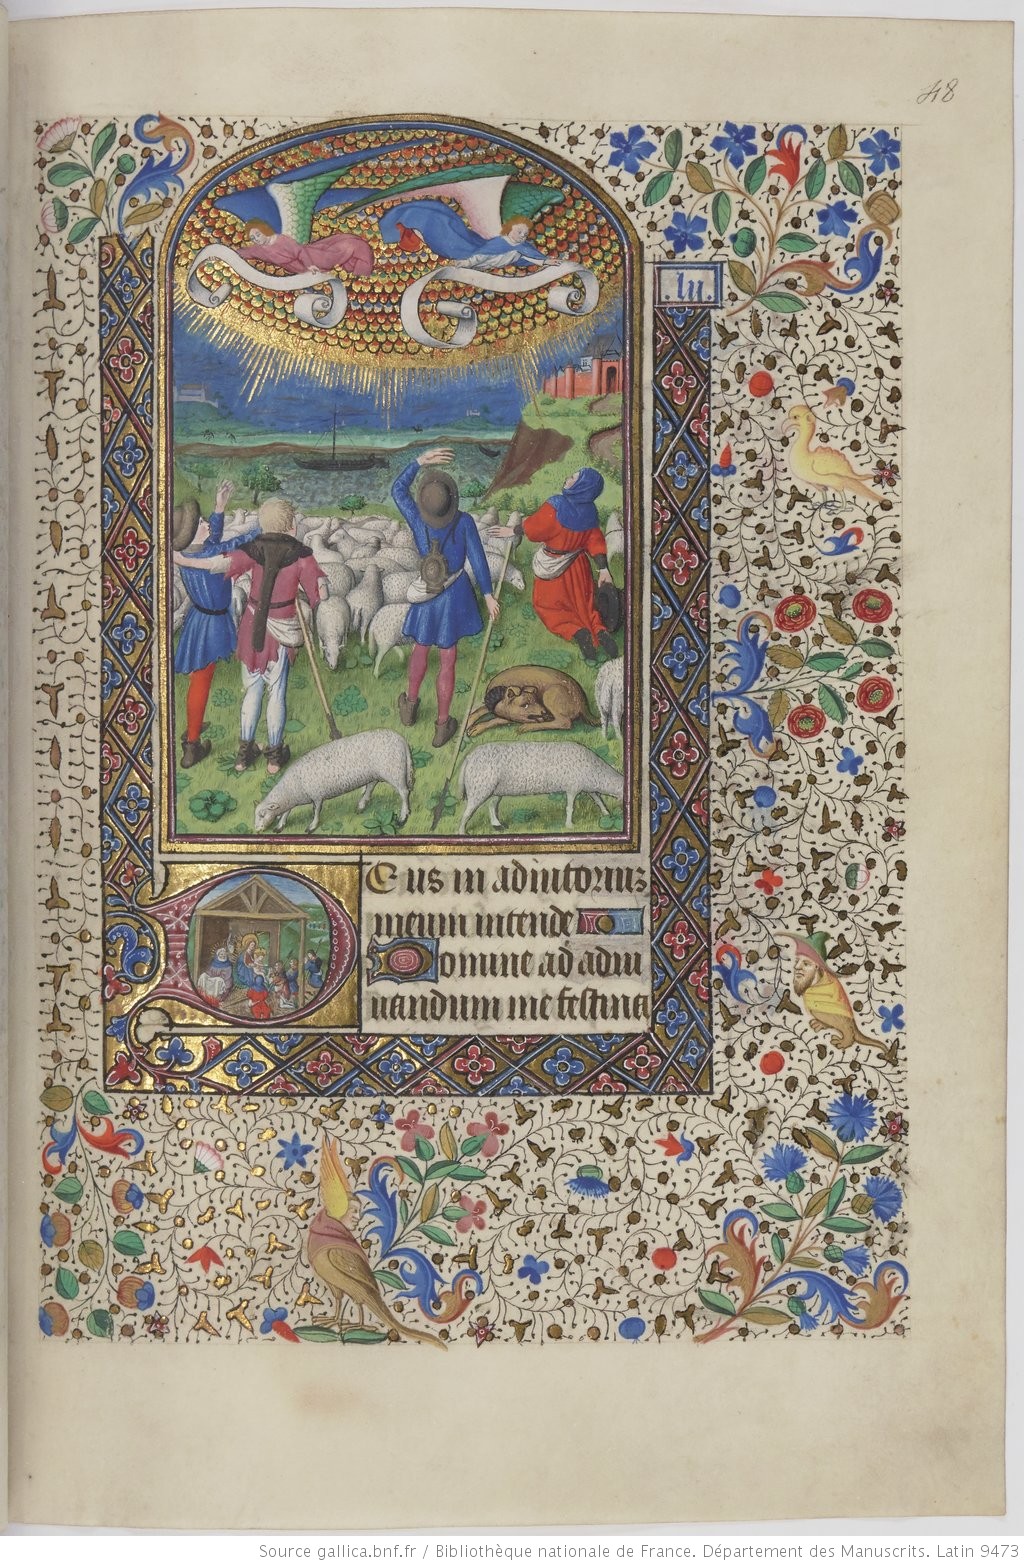 48
.lii.
Deus in adiutorium
meum intende
Domine ad adiu
uandum me festina
Source gallica.bnf.fr / Bibliothèque nationale de France. Département des Manuscrits. Latin 9473